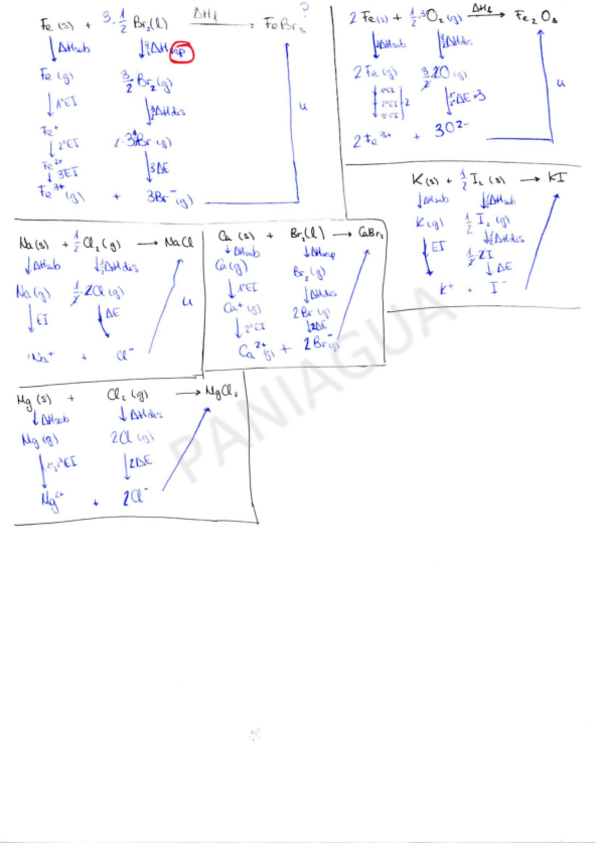 Fe (s) + 3·1/2 Br₂(l) ΔHf → FeBr₃ ?
↓ΔHsub ↓3/2 ΔHvap
Fe (g) 3/2 Br₂(g)
↓1ºEI ↓3/2 ΔHdis
Fe⁺ Br(g)
↓2ºEI
Fe²⁺ ↓3ΔE
↓3EI
Fe³⁺(g) + 3Br⁻(g)
u
2 Fe(s) + 1/2·3O₂(g) ΔHf → Fe₂O₃
ΔHsub ΔHdis
2 Fe (g) 3/2 2O(g)
1ºEI
2ºEI 2 ΔE·3
3ºEI
2Fe³⁺ + 3O²⁻
u
K(s) + 1/2 I₂ (s) → KI
↓ΔHsub ↓1/2ΔHsub
K(g) 1/2 I₂ (g)
↓EI ↓1/2ΔHdis
1/2 2I
↓ΔE
K⁺ + I⁻
Na(s) + 1/2 Cl₂(g) → NaCl
↓ΔHsub ↓1/2ΔHdis
Na(g) 1/2 2Cl(g)
↓EI ↓ΔE
Na⁺ + Cl⁻
u
Ca (s) + Br₂(l) → CaBr₂
↓ΔHsub ↓ΔHvap
Ca(g) Br₂(g)
↓1ºEI ↓ΔHdis
Ca⁺(g) 2Br(g)
↓2ºEI ↓2ΔE
Ca²⁺(g) + 2Br⁻(g)
Mg(s) + Cl₂(g) → MgCl₂
↓ΔHsub ↓ΔHdis
Mg(g) 2Cl(g)
EI ↓2ΔE
Mg²⁺ + 2Cl⁻
PANIAGUA